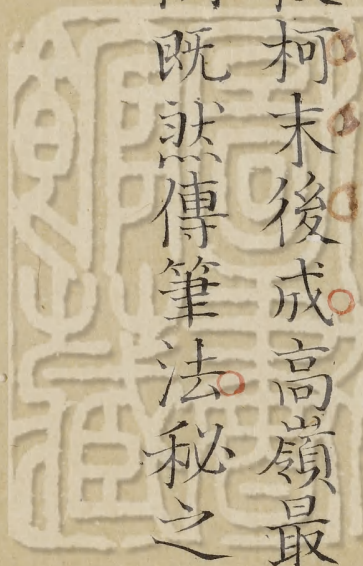 柯末後成高嶺最
既然傳筆法秘之